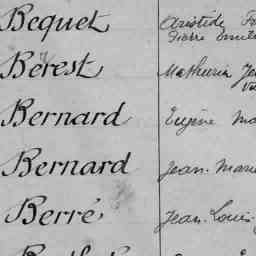 Bequet Aristide
Pierre
Bérest Mathurin
Bernard Eugène
Bernard Jean Marie
Berré Jean Louis